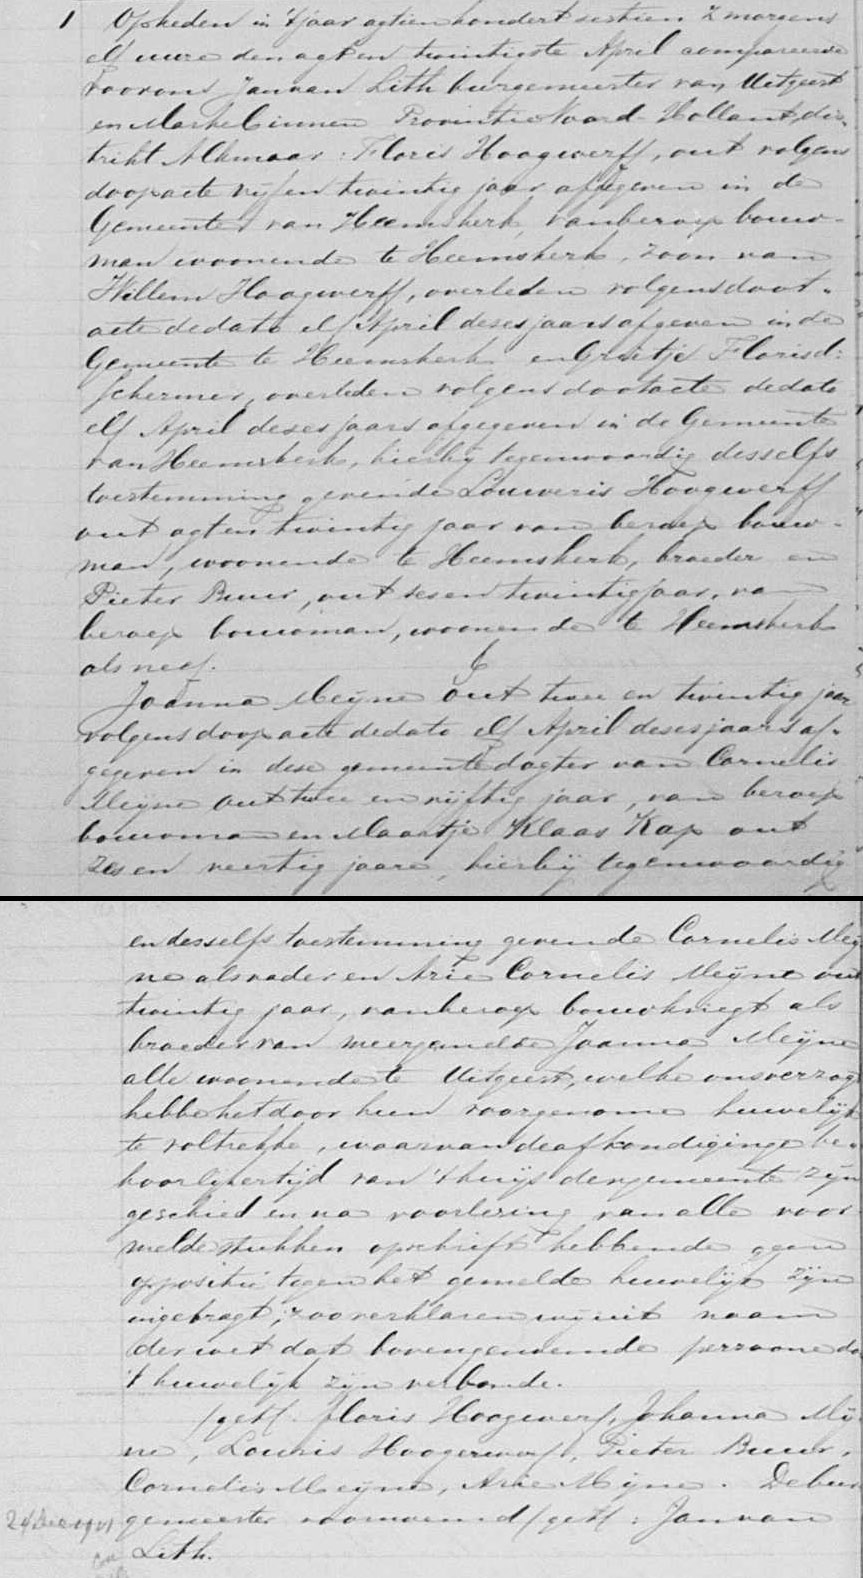 1 Opheden in 't jaar agtienhondert sestien 's morgens
elf uure den agt en twintigste April compareerde
voor ons Jan van Lith burgemeester van Uitgeest
en Markebinnen Provintie Noord-Hollant, dis-
trikt Alkmaar: Floris Hoogewerff, out volgens
doopacte vijf en twintig jaar afgegeven in de
Gemeente van Heemskerk, van beroep bouw-
man woonende te Heemskerk, zoon van
Willem Hoogewerff, overleden volgens doot-
acte de dato elf April deses jaars afgeven in de
Gemeente te Heemskerk en Grietje Florisd:
Schermer, overleden volgens dootacte de dato
elf April deses jaars afgegeven in de Gemeente
van Heemskerk, hierbij tegenwoordig desselfs
toestemming gevende Louweris Hoogewerff
out agt en twintig jaar van beroep bouw-
man, woonende te Heemskerk, broeder en
Pieter Buur, out ses en twintig jaar, van
beroep bouwman, woonende te Heemskerk
als neef. &
Joanna Meijne out twee en twintig jaar
volgens doopacte de dato elf April deses jaars af-
gegeven in dese gemeente dogter van Cornelis
Meijne out twee en vijftig jaar, van beroep
bouwman en Maartje Klaas Kap out
zes en veertig jaare, hierbij tegenwoordig
en desselfs toestemming gevende Cornelis Meij
ne als vader en Arie Cornelis Meijne out
twintig jaar, van beroep bouwknegt als
broeder van meergemelde Joanna Meijne
alle woonende te Uitgeest, welke ons verzogt
hebbe het door hun voorgenome huwelijk
te voltrekke, waarvan de afkondiginge be-
hoorlijkertijd van 't huijs der gemeente zijn
geschied en na voorlesing van alle voor
melde stukken opschrift hebbende geen
oppositie tegen het gemelde huwelijk zijn
ingebragt, zoo verklaren wij uit naam
der wet dat bovengenoemde persoone do
't huwelijk zijn verbonde.
/get/. Floris Hoogewerf, Johanna Mij
ne, Louris Hoogewerf, Pieter Buur,
Cornelis Meijne, Arie Mijne. De bur
gemeester voornoemd /get/: Jan van
Lith.